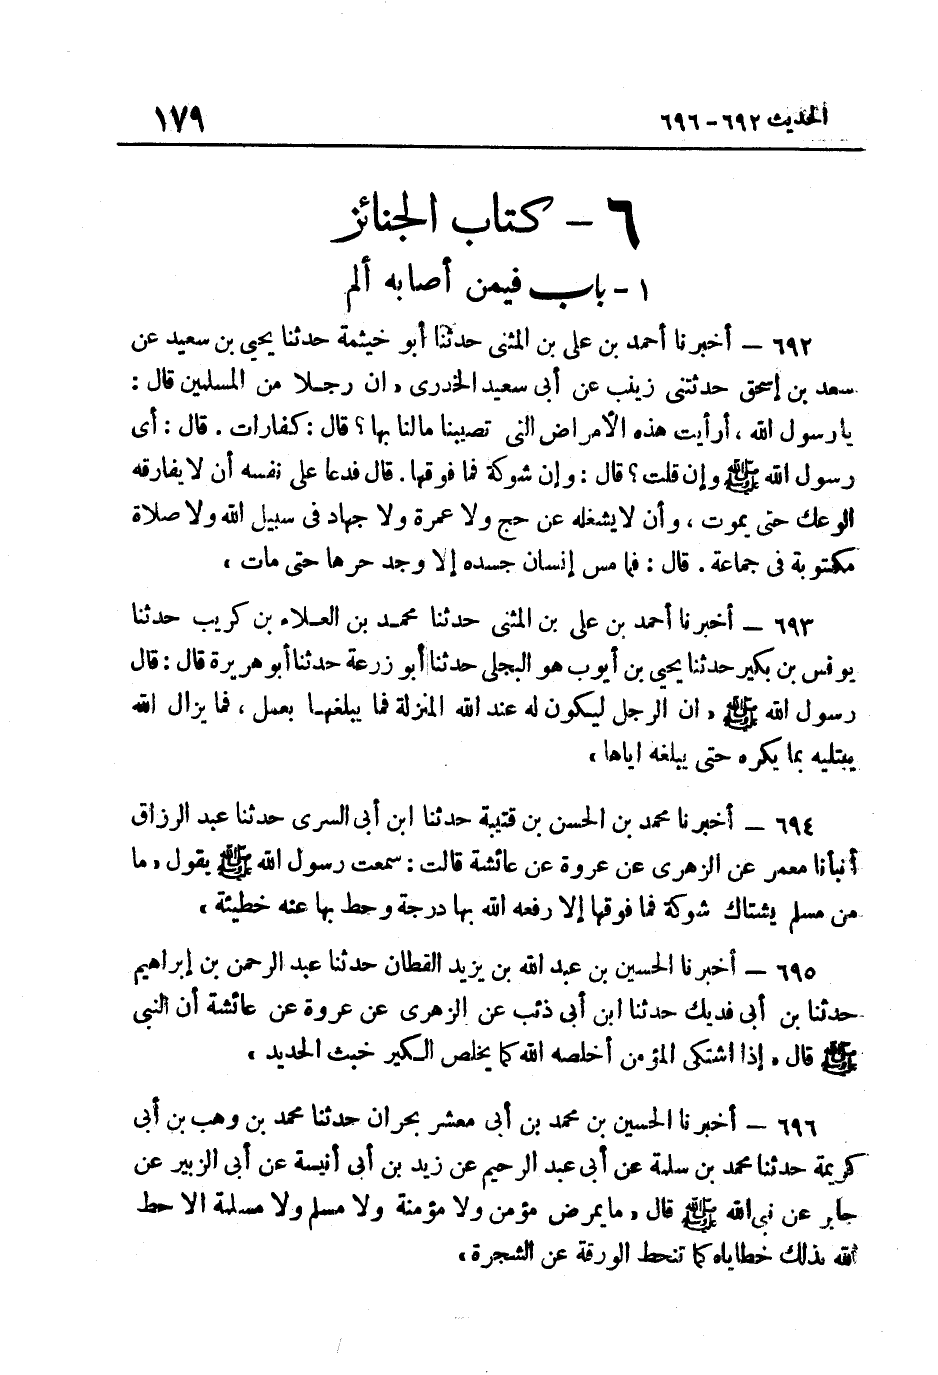 الحديث ٦٩٢ - ٦٩٦
١٧٩
٦ - كتاب الجنائز
١ - باب فيمن أصابه ألم
٦٩٢ — أخبرنا أحمد بن على بن المثنى حدثنا أبو خيثمة حدثنا يحيى بن سعيد عن
سعد بن إسحق حدثتنى زينب عن أبى سعيد الخدرى « ان رجلا من المسلمين قال :
يا رسول الله ، أرأيت هذه الأمراض التى تصيبنا مالنا بها ؟ قال : كفارات . قال : أى
رسول الله ﷺ وإن قلت ؟ قال : وإن شوكة فما فوقها . قال فدعا على نفسه أن لا يفارقه
الوعك حتى يموت ، وأن لا يشغله عن حج ولا عمرة ولا جهاد فى سبيل الله ولا صلاة
مكتوبة فى جماعة . قال : فما مس إنسان جسده إلا وجد حرها حتى مات »
٦٩٣ — أخبرنا أحمد بن على بن المثنى حدثنا محمد بن العلاء بن كريب حدثنا
يونس بن بكير حدثنا يحيى بن أيوب هو البجلى حدثنا أبو زرعة حدثنا أبو هريرة قال : قال
رسول الله ﷺ « ان الرجل ليكون له عند الله المنزلة فما يبلغها بعمل ، فما يزال الله
يبتليه بما يكره حتى يبلغه اياها »
٦٩٤ — أخبرنا محمد بن الحسن بن قتيبة حدثنا ابن أبى السرى حدثنا عبد الرزاق
أنبأنا معمر عن الزهرى عن عروة عن عائشة قالت : سمعت رسول الله ﷺ يقول « ما
من مسلم يشتاك شوكة فما فوقها إلا رفعه الله بها درجة وحط بها عنه خطيئة »
٦٩٥ — أخبرنا الحسين بن عبد الله بن يزيد القطان حدثنا عبد الرحمن بن إبراهيم
حدثنا بن أبى فديك حدثنا ابن أبى ذئب عن الزهرى عن عروة عن عائشة أن النبى
ﷺ قال « إذا اشتكى المؤمن أخلصه الله كما يخلص الكير خبث الحديد »
٦٩٦ — أخبرنا الحسين بن محمد بن أبى معشر بحران حدثنا محمد بن وهب بن أبى
كريمة حدثنا محمد بن سلمة عن أبى عبد الرحيم عن زيد بن أبى أنيسة عن أبى الزبير عن
جابر عن نبى الله ﷺ قال « ما يمرض مؤمن ولا مؤمنة ولا مسلم ولا مسلمة الا حط
الله بذلك خطاياه كما تنحط الورقة عن الشجرة »